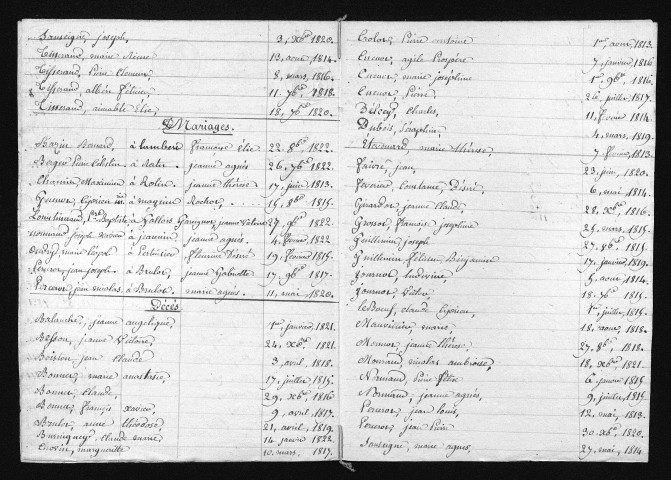 Sanseigne, joseph, 3, Xbre 1820.
Tisserand, marie 13, aout, 1814.
Tisserand, Pierre 8, mars, 1816.
Tisserand, albéric Félicien 11, 7bre 1818.
Tisserand, aimable Elie, 18, 7bre 1820.
Mariages.
Bazin Bonard, à Lambert françoise Elie 22, 8bre 1822.
Berger Pierre Célestin à jeanne agnès 26, 7bre 1822.
Maximien à jeanne thérèse 17, juin, 1813.
Cuenot, Cyprien à 15, 8bre 1815.
jean Baptiste à jeanne Victoire 27, 9bre 1822.
joseph Xavier à jeannin, jeanne agnès. 4, février 1822
à fleurine Désiré 19, février 1815.
jean joseph à Brulot, jeanne 17, 9bre 1817.
Perrenot, jean nicolas, à Brulot, marie agnès. 11, mai, 1820.
Décès
Balanche, jeanne angélique, 1er janvier, 1821.
Besson, jeanne Victoire, 24, Xbre 1821.
Boisson, jean Claude 3, avril, 1818.
Bonnet, marie anastasie, 17, juillet, 1815.
Bonnet, Claude, 29, Xbre 1816
Bonnet, François Xavier, 9, avril, 1817.
Brulot, anne théodose, 21, avril, 1819.
claude marie 14, janvier 1822.
marguerite 10, mars, 1817.
Crolot, Pierre antoine 1er, avril, 1813.
Cuenot, agile Prospère 7, janvier 1816
Cuenot, marie joséphine 1er, 9bre 1816.
Cuenot, Pierre, 24, juillet, 1817.
Delcey, Charles, 11, février 1814.
Dubois, Séraphin, 4, mars, 1819.
marie thérèse, 7, février, 1813.
Faivre, jean, 23, juin, 1820.
constance, Désiré, 6, mai, 1814.
Girardot, jeanne Claude, 28, Xbre 1816.
Grosset, François joseph 25, mars, 1815.
Guillemin, joseph 27, 8bre 1815.
Guillemin, Benjamin 17, janvier, 1819.
Journot, Ludivine, 5, aout, 1814.
Journot, 18, 7bre 1815.
leBoeuf, claude Cyprien, 1er, juillet, 1815.
Mauvilliers, marie, 18, aout, 1818.
Monnot, jeanne thérèse, 27, 8bre 1818.
nicolas ambroise, 18, Xbre 1821.
Normand, Pierre Félix 6, janvier 1815.
Normand, jeanne agnès, 9, juillet, 1815.
Perrenot, jean louis, 12, mai, 1813.
Perrenot, jean Pierre 30, Xbre 1820.
Sanseigne, marie agnès, 27, mai, 1814.